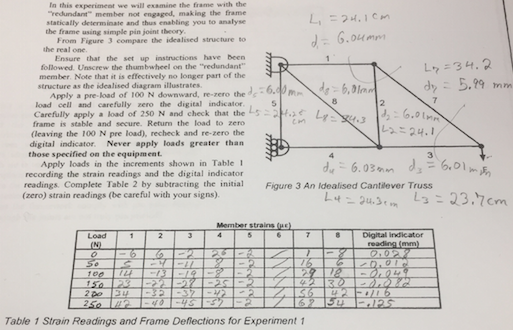 In this experiment we will examine the frame with the
"redundant" member not engaged, making the frame
statically determinate and thus enabling you to analyse
the frame using simple pin joint theory.
From Figure 3 compare the idealised structure to
the real one.
Ensure that the set up instructions have been
followed. Unscrew the thumbwheel on the "redundant"
member. Note that it is effectively no longer part of the
structure as the idealised diagram illustrates.
Apply a pre-load of 100 N downward, re-zero the
load cell and carefully zero the digital indicator.
Carefully apply a load of 250 N and check that the
frame is stable and secure. Return the load to zero
(leaving the 100 N pre load), recheck and re-zero the
digital indicator. Never apply loads greater than
those specified on the equipment.
Apply loads in the increments shown in Table 1
recording the strain readings and the digital indicator
readings. Complete Table 2 by subtracting the initial
(zero) strain readings (be careful with your signs).
L1 = 24.1 cm
d1 = 6.04mm
1
L7 = 34.2
d7 = 5.99 mm
d8 = 6.01mm
5
8
2
7
d2 = 6.01mm
L2 = 24.1
4
3
d4 = 6.03mm
d3 = 6.01 mm
Figure 3 An Idealised Cantilever Truss
L4 = 24.3cm
L3 = 23.7cm
Member strains (με)
Load (N) 1 2 3 4 5 6 7 8 Digital indicator reading (mm)
0 -6 6 -2 26 -2 1 -8 0.028
50 5 -4 -11 8 -2 16 6 -0.012
100 14 -13 -19 -8 -2 29 18 -0.049
150 23 -22 -28 -25 -2 42 30 -0.082
200 -32 -37 -42 -2 56 42 -.116
250 42 -40 -45 -57 -2 68 54 -.125
Table 1 Strain Readings and Frame Deflections for Experiment 1